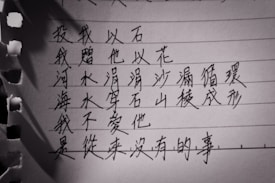 投我以石
我贈他以花
河水涓涓沙漏循環
海水穿石山稜成形
我不愛他
是從來沒有的事